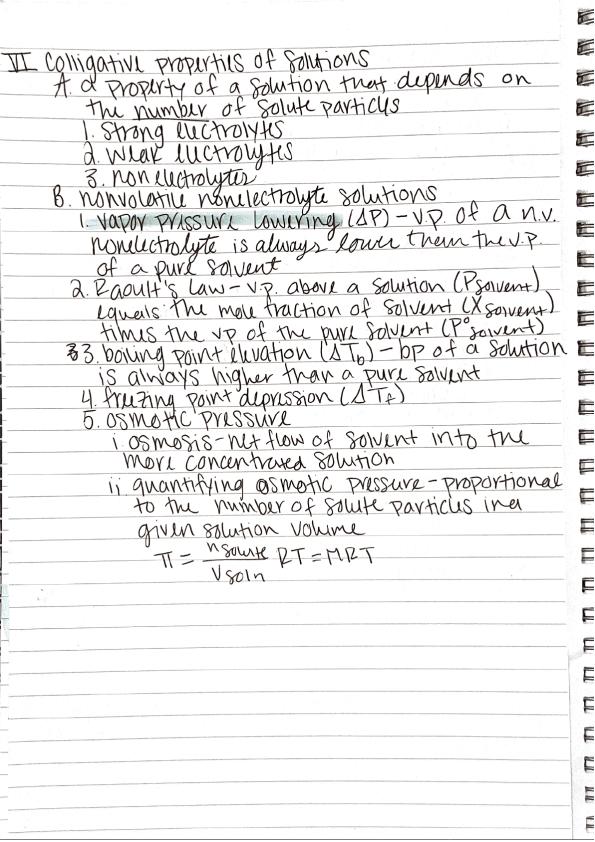 VI Colligative properties of solutions
A. a property of a solution that depends on
the number of solute particles
1. Strong electrolytes
2. weak electrolytes
3. nonelectrolytes
B. nonvolatile nonelectrolyte solutions
1. vapor pressure lowering (ΔP) - v.p. of a n.v.
nonelectrolyte is always lower them the v.p.
of a pure solvent
2. Raoult's Law - v.p. above a solution (Psolvent)
equals the mole fraction of solvent (Xsolvent)
times the vp of the pure solvent (P°solvent)
3. boiling point elevation (ΔTb) - bp of a solution
is always higher than a pure solvent
4. freezing point depression (ΔTf)
5. osmotic pressure
i. osmosis - net flow of solvent into the
more concentrated solution
ii quantifying osmotic pressure - proportional
to the number of solute particles in a
given solution volume
π = nsolute/Vsoln RT = MRT